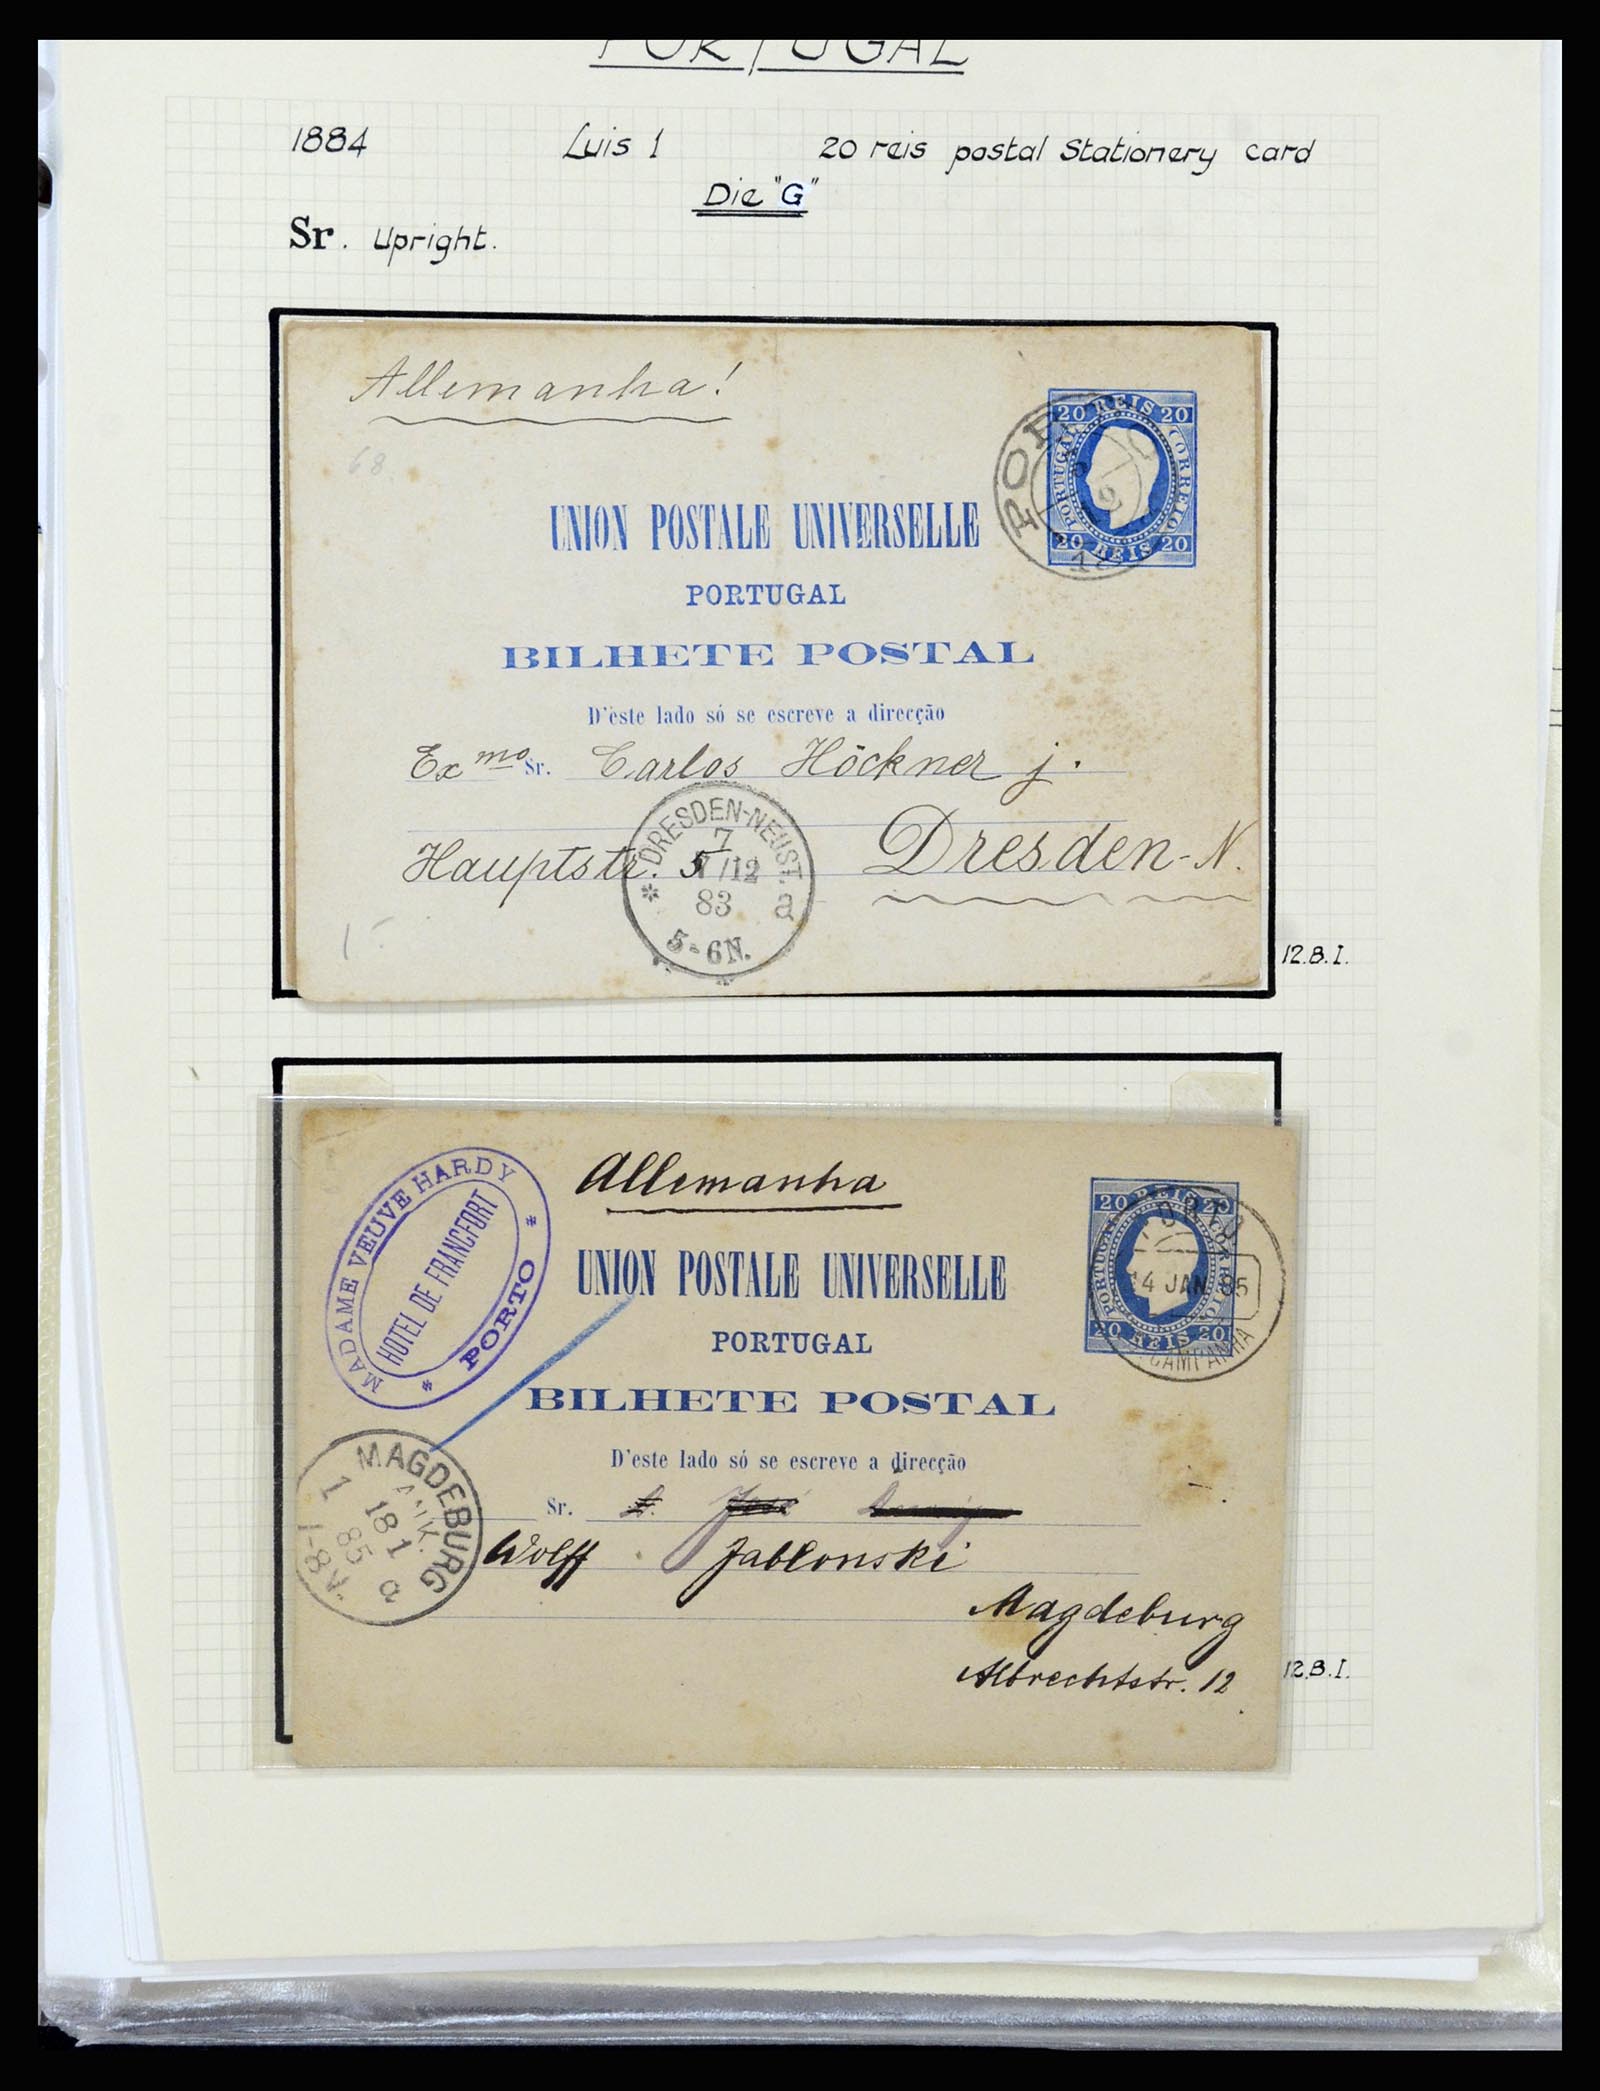 PORTUGAL
1884 Luis 1 20 reis postal Stationery card
Die "G"
Sr. Upright.
Allemanha!
68
20 REIS 20
PORTUGAL
CORREIO
20 REIS 20
UNION POSTALE UNIVERSELLE
PORTUGAL
BILHETE POSTAL
D'éste lado só se escreve a direcção
Exmo Sr. Carlos Höckner j.
Hauptstr. 5 Dresden-N.
DRESDEN-NEUST.
7
/12
83
a
5-6N.
12.B.I.
MADAME VEUVE HARDY
HOTEL DE FRANCFORT
* PORTO *
Allemanha
20 REIS 20
PORTUGAL
CORREIO
20 REIS 20
PORTO
14 JAN. 85
CAMPANHA
UNION POSTALE UNIVERSELLE
PORTUGAL
BILHETE POSTAL
D'este lado só se escreve a direcção
Sr. José
Wolff Jablonski
Magdeburg
Albrechtstr. 12
MAGDEBURG
1
18 1
85
a
12.B.I.